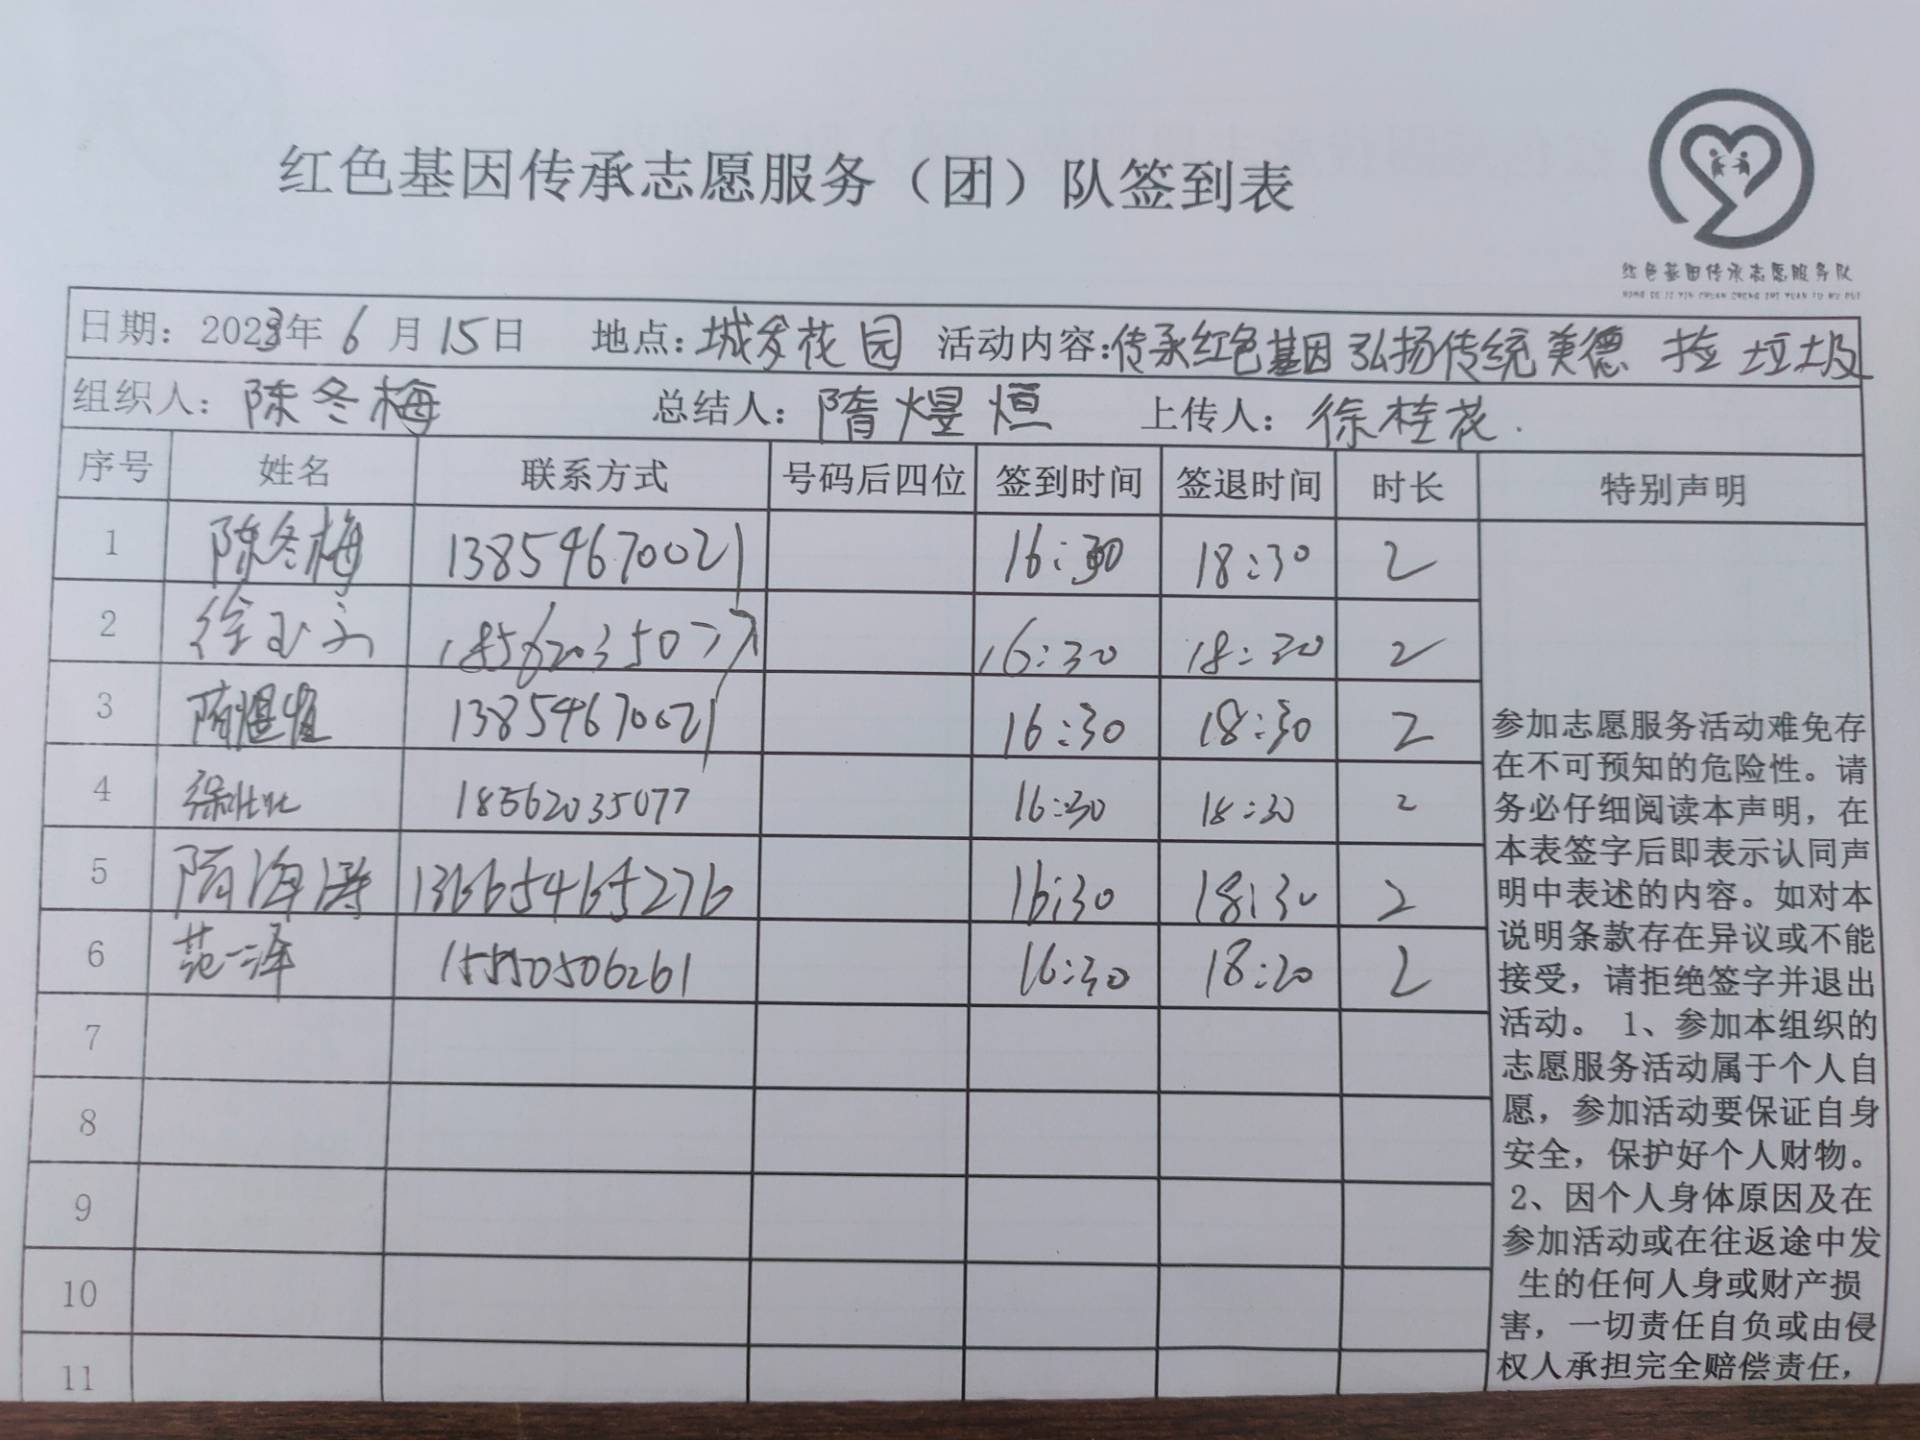 红色基因传承志愿服务（团）队签到表
红色基因传承志愿服务队
HONG SE JI YIN CHUAN CHENG ZHI YUAN FU WU DUI
日期：2023年6月15日 地点：城发花园 活动内容：传承红色基因 弘扬传统美德 捡垃圾
组织人：陈冬梅 总结人：隋煜恒 上传人：徐桂花.
序号 姓名 联系方式 号码后四位 签到时间 签退时间 时长 特别声明
1 陈冬梅 13854670021 16:30 18:30 2
2 徐玉 18562035077 16:30 18:30 2
3 隋煜恒 13854670021 16:30 18:30 2
4 徐桂花 18562035077 16:30 18:30 2
5 隋海涛 13665465276 16:30 18:30 2
6 范一泽 15550506261 16:30 18:30 2
7
8
9
10
11
参加志愿服务活动难免存
在不可预知的危险性。请
务必仔细阅读本声明，在
本表签字后即表示认同声
明中表述的内容。如对本
说明条款存在异议或不能
接受，请拒绝签字并退出
活动。 1、参加本组织的
志愿服务活动属于个人自
愿，参加活动要保证自身
安全，保护好个人财物。
2、因个人身体原因及在
参加活动或在往返途中发
生的任何人身或财产损
害，一切责任自负或由侵
权人承担完全赔偿责任，